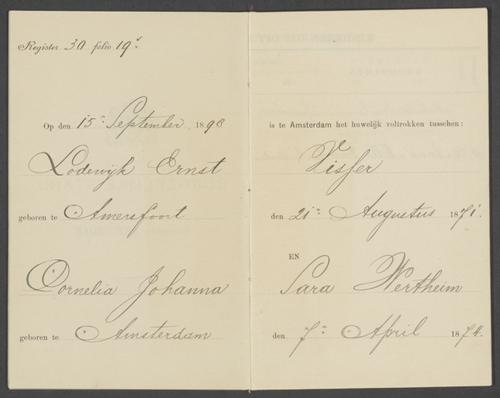 Register 30 folio 19v.
Op den 15e September 1898 is te Amsterdam het huwelijk voltrokken tusschen:
Lodewijk Ernst Visser
geboren te Amersfoort den 21e Augustus 1871.
EN
Cornelia Johanna Sara Wertheim
geboren te Amsterdam den 7e April 1874.